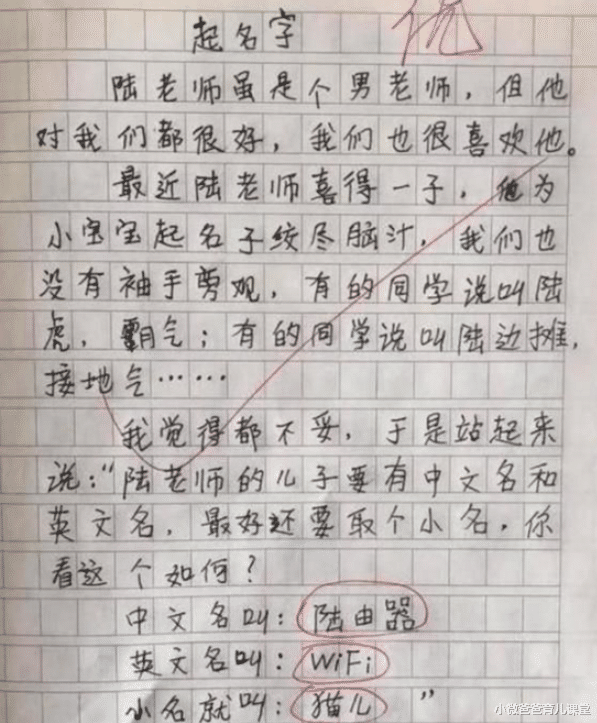 优
起名字
陆老师虽是个男老师，但他
对我们都很好，我们也很喜欢他。
最近陆老师喜得一子，他为
小宝宝起名子绞尽脑汁，我们也
没有袖手剪观，有的同学说叫陆
虎，霸气；有的同学说叫陆边摊，
接地气……
我觉得都不妥，于是站起来
说：“陆老师的儿子要有中文名和
英文名，最好还要取个小名，你
看这个如何？
中文名叫：陆由器
英文名叫：WiFi
小名就叫：猫儿”
小微爸爸育儿课堂